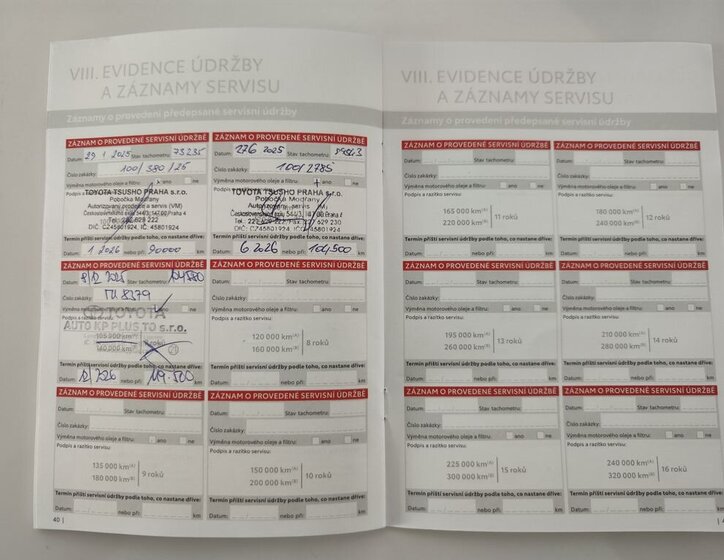 VIII. EVIDENCE ÚDRŽBY
A ZÁZNAMY SERVISU
Záznamy o provedení předepsané servisní údržby
ZÁZNAM O PROVEDENÉ SERVISNÍ ÚDRŽBĚ
Datum: 29 1 2025 Stav tachometru: 75235
100/380/25
Výměna motorového oleje a filtru: ano ne
TOYOTA TSUSHO PRAHA s.r.o.
Pobočka Modřany
Autorizovaný prodejce a servis (VM)
Československého exilu 544/3, 147 00 Praha 4
DIČ: CZ45801924, IČ: 45801924
Termín příští servisní údržby podle toho, co nastane dříve:
Datum: 1 2026 nebo při: 90000 km
ZÁZNAM O PROVEDENÉ SERVISNÍ ÚDRŽBĚ
Datum: 27 6 2025 Stav tachometru:
100/2785
Výměna motorového oleje a filtru: ano ne
TOYOTA TSUSHO PRAHA s.r.o.
Pobočka Modřany
DIČ: CZ45801924, IČ: 45801924
Termín příští servisní údržby podle toho, co nastane dříve:
Datum: 6 2026 nebo při: 104500 km
ZÁZNAM O PROVEDENÉ SERVISNÍ ÚDRŽBĚ
Datum: 2025 Stav tachometru: 104580
Číslo zakázky: 8379
Výměna motorového oleje a filtru:
TOYOTA
Podpis a razítko servisu:
AUTO KP PLUS TO s.r.o.
105 000 km(A)
140 000 km(B)
Termín příští servisní údržby podle toho, co nastane dříve:
Datum: nebo při: 119.500 km
ZÁZNAM O PROVEDENÉ SERVISNÍ ÚDRŽBĚ
Datum: Stav tachometru:
Číslo zakázky:
Výměna motorového oleje a filtru: ano ne
Podpis a razítko servisu:
120 000 km(A)
160 000 km(B)
8 roků
Termín příští servisní údržby podle toho, co nastane dříve:
Datum: nebo při: km
ZÁZNAM O PROVEDENÉ SERVISNÍ ÚDRŽBĚ
Datum: Stav tachometru:
Číslo zakázky:
Výměna motorového oleje a filtru: ano ne
Podpis a razítko servisu:
135 000 km(A)
180 000 km(B)
9 roků
Termín příští servisní údržby podle toho, co nastane dříve:
Datum: nebo při: km
ZÁZNAM O PROVEDENÉ SERVISNÍ ÚDRŽBĚ
Datum: Stav tachometru:
Číslo zakázky:
Výměna motorového oleje a filtru: ano ne
Podpis a razítko servisu:
150 000 km(A)
200 000 km(B)
10 roků
Termín příští servisní údržby podle toho, co nastane dříve:
Datum: nebo při: km
40 |
VIII. EVIDENCE ÚDRŽBY
A ZÁZNAMY SERVISU
Záznamy o provedení předepsané servisní údržby
ZÁZNAM O PROVEDENÉ SERVISNÍ ÚDRŽBĚ
Datum: Stav tachometru:
Číslo zakázky:
Výměna motorového oleje a filtru: ano ne
Podpis a razítko servisu:
165 000 km(A)
220 000 km(B)
11 roků
Termín příští servisní údržby podle toho, co nastane dříve:
Datum: nebo při: km
ZÁZNAM O PROVEDENÉ SERVISNÍ ÚDRŽBĚ
Datum: Stav tachometru:
Číslo zakázky:
Výměna motorového oleje a filtru: ano ne
Podpis a razítko servisu:
180 000 km(A)
240 000 km(B)
12 roků
Termín příští servisní údržby podle toho, co nastane dříve:
Datum: nebo při: km
ZÁZNAM O PROVEDENÉ SERVISNÍ ÚDRŽBĚ
Datum: Stav tachometru:
Číslo zakázky:
Výměna motorového oleje a filtru: ano ne
Podpis a razítko servisu:
195 000 km(A)
260 000 km(B)
13 roků
Termín příští servisní údržby podle toho, co nastane dříve:
Datum: nebo při: km
ZÁZNAM O PROVEDENÉ SERVISNÍ ÚDRŽBĚ
Datum: Stav tachometru:
Číslo zakázky:
Výměna motorového oleje a filtru: ano ne
Podpis a razítko servisu:
210 000 km(A)
280 000 km(B)
14 roků
Termín příští servisní údržby podle toho, co nastane dříve:
Datum: nebo při: km
ZÁZNAM O PROVEDENÉ SERVISNÍ ÚDRŽBĚ
Datum: Stav tachometru:
Číslo zakázky:
Výměna motorového oleje a filtru: ano ne
Podpis a razítko servisu:
225 000 km(A)
300 000 km(B)
15 roků
Termín příští servisní údržby podle toho, co nastane dříve:
Datum: nebo při: km
ZÁZNAM O PROVEDENÉ SERVISNÍ ÚDRŽBĚ
Datum: Stav tachometru:
Číslo zakázky:
Výměna motorového oleje a filtru: ano ne
Podpis a razítko servisu:
240 000 km(A)
320 000 km(B)
16 roků
Termín příští servisní údržby podle toho, co nastane dříve:
Datum: nebo při: km